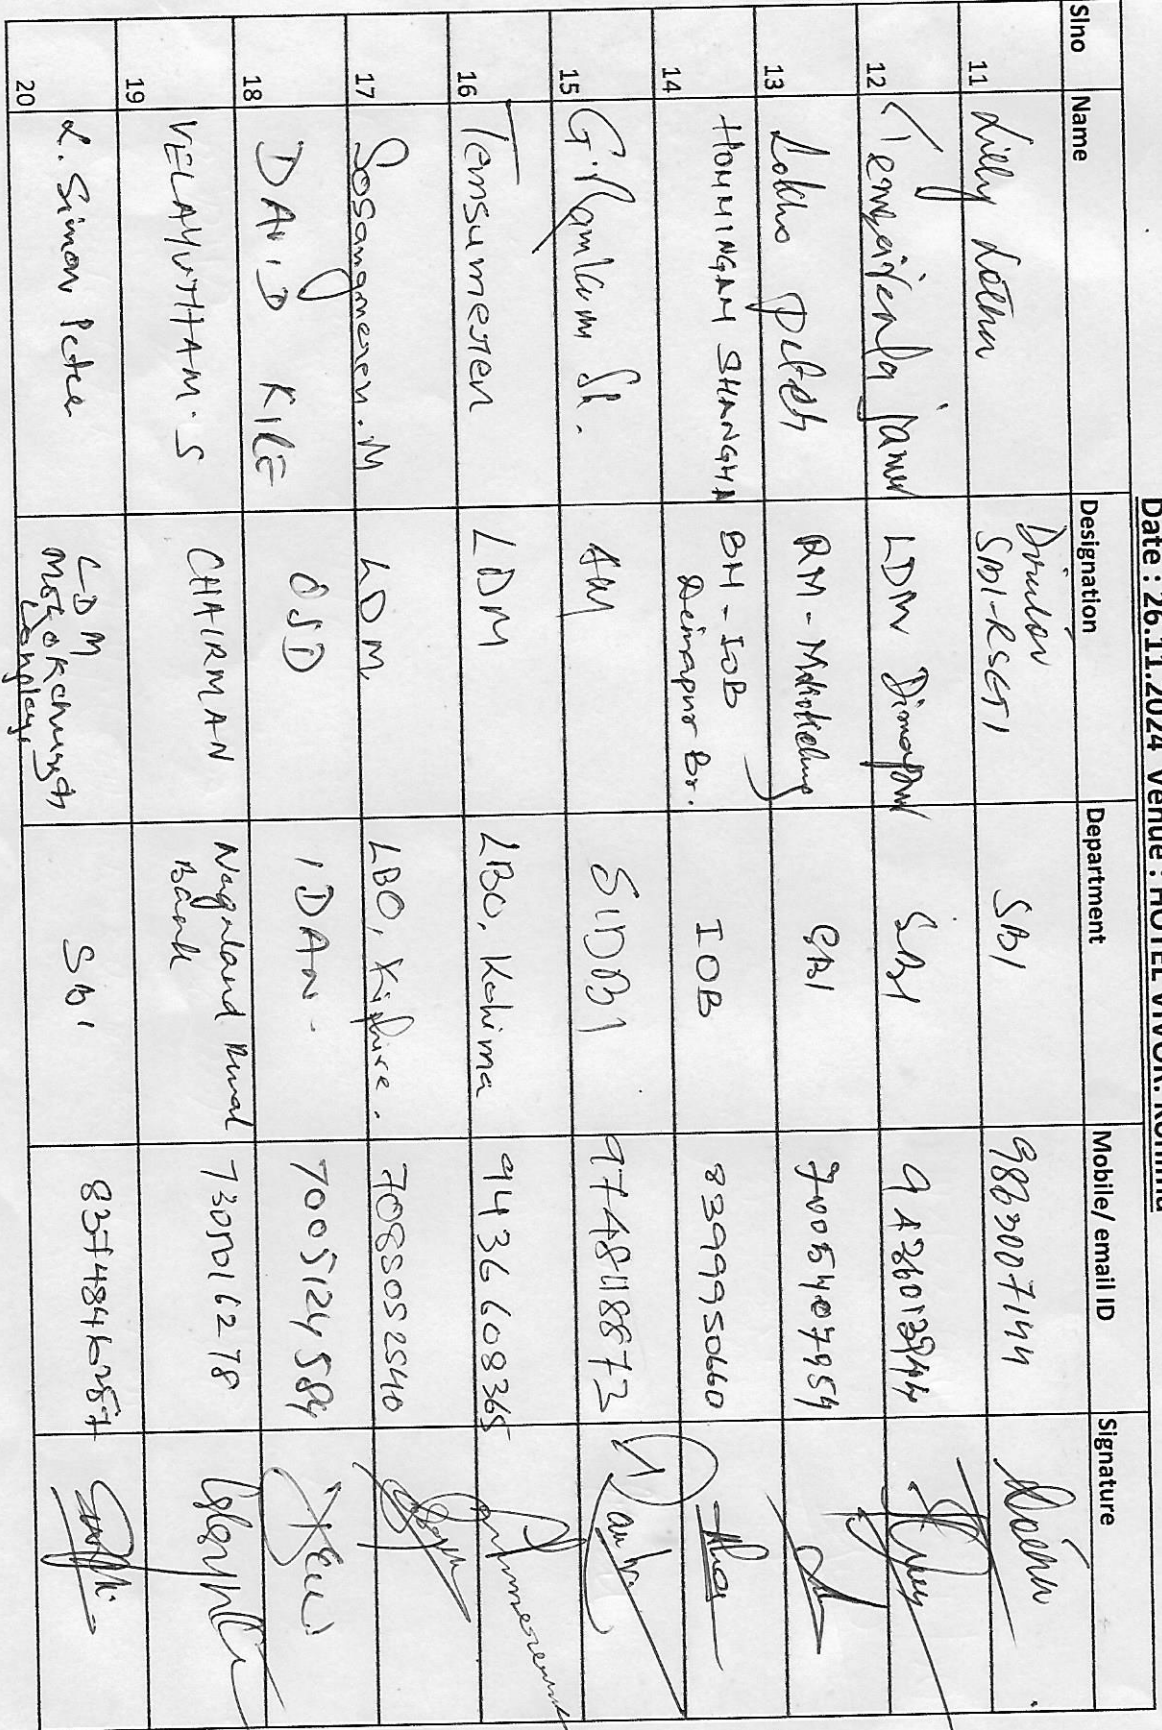 Date : 26.11.2024 Venue : HOTEL VIVOR. Kohima
Slno Name Designation Department Mobile/ email ID Signature
11 Lilly Lotha Director SBI-RSETI SBI
12 jamir LDM Dimapur SBI
13 Lokho RM - Mokokchung SBI 7005407954
14 HOMMINGAM SHANGHA BM - IOB Dimapur Br. IOB 8399950660
15 AM SIDBI 9748118873
16 Temsumeren LDM LBO, Kohima 9436608365
17 Sosangmeren. M LDM LBO, Kiphire. 7085052540
18 DAVID KIRE OSD IDAN. 7005124584
19 VELAYUTHAM. S CHAIRMAN Nagaland Rural Bank 7305016278
20 L. Simon Peter LDM Mokokchung Longleng SBI